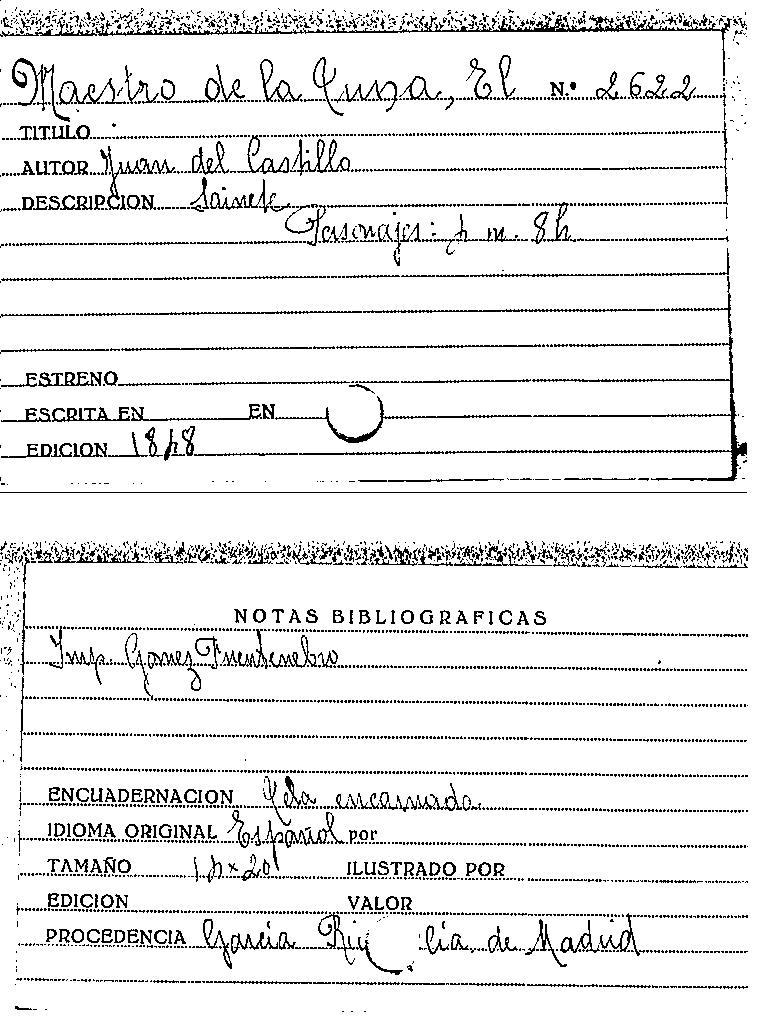 Maestro de la Tuna, El Nº 2622
TITULO
AUTOR Juan del Castillo
DESCRIPCION Sainete
Personajes: 4 m. 8h
ESTRENO
ESCRITA EN EN
EDICION 1848
NOTAS BIBLIOGRAFICAS
Imp. Gomez Fuentenebro
ENCUADERNACION Tela encarnada
IDIOMA ORIGINAL Español por
TAMAÑO 14 x 20 ILUSTRADO POR
EDICION VALOR
PROCEDENCIA García de Madrid